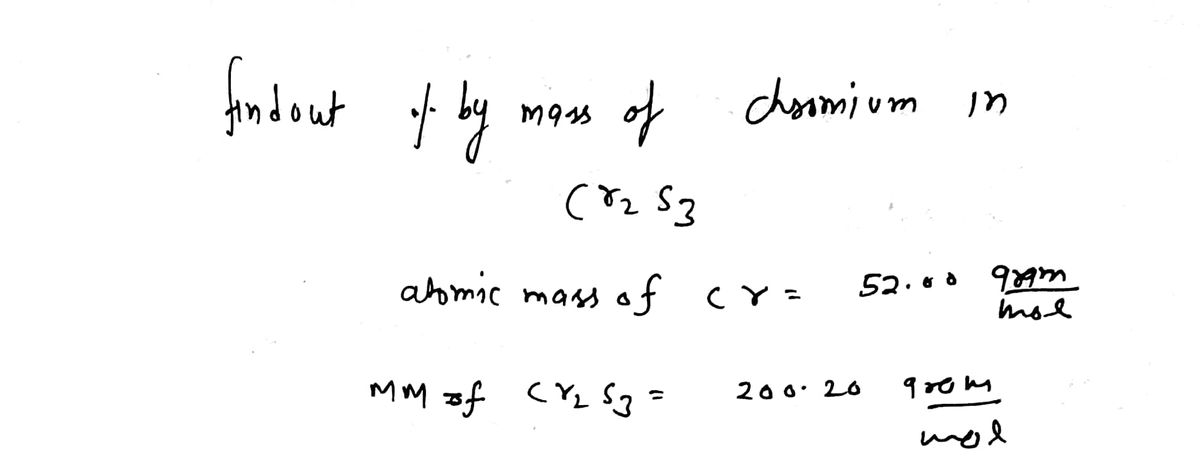 find out % by mass of chromium in
Cr2 S3
atomic mass of Cr = 52.00 gram/mol
MM of Cr2 S3 = 200.20 gram/mol